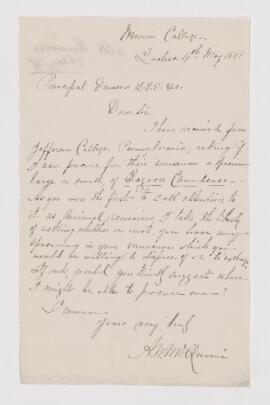 Morrin College
Quebec 4th May 1881
Principal Dawson LLD &c.
Dear Sir
I have received from
Jefferson College Pennsylvania, asking if
I can procure for their museum a specimen
large or small of Eozoon Canadense.
As you were the first to call attention to
it as Animal remains I take the liberty
of asking whether or not you have any
specimen in your museum which you
would be willing to dispose of or to exchange
If not, would you kindly suggest where
I might be able to procure one?
I remain
Yours very truly